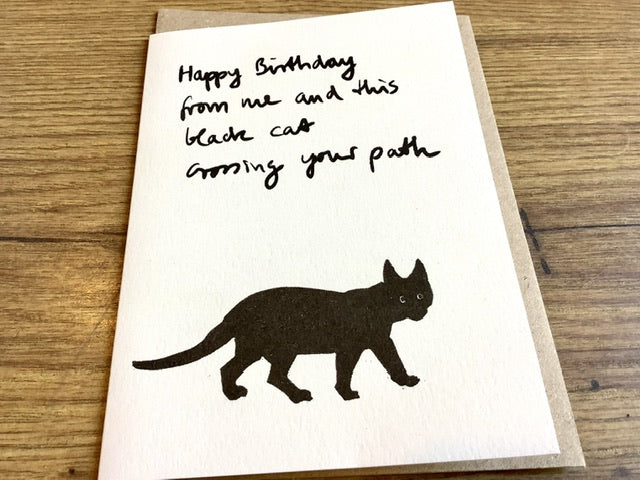 Happy Birthday
from me and this
black cat
crossing your path